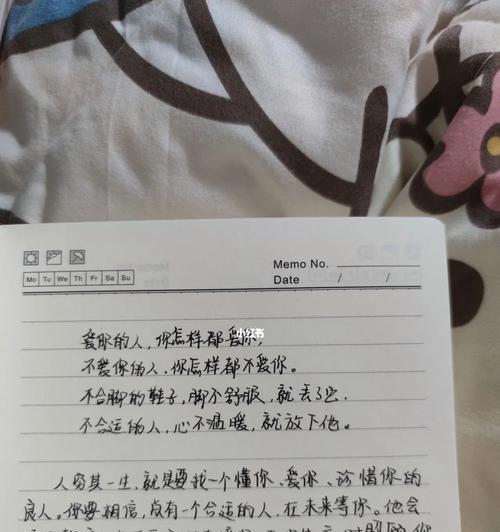 Mo Tu We Th Fr Sa Su
Memo No.
Date / /
爱你的人，你怎样都爱你，
小红书
不爱你的人，你怎样都不爱你。
不合脚的鞋子，脚不舒服，就丢了它
不合适的人，心不温暖，就放下他。
人穷其一生，就是要找一个懂你、爱你、珍惜你的
良人。你要相信，总有一个合适的人，在未来等你。他会